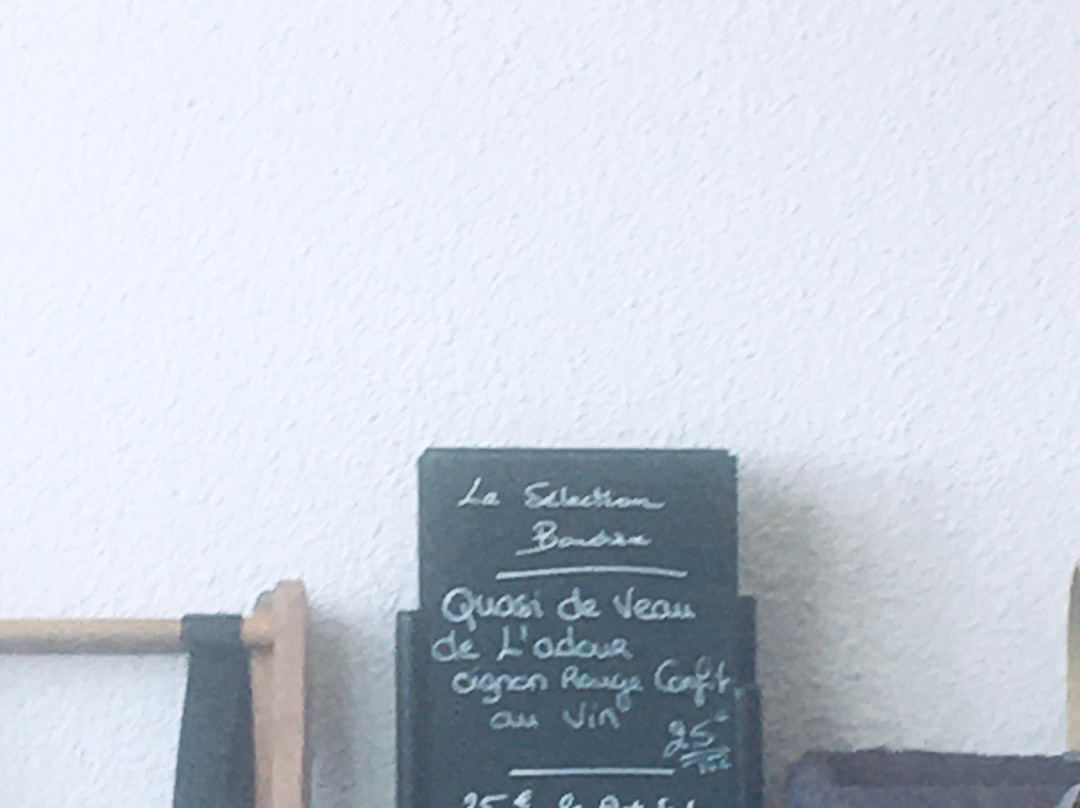 La Sélection
Quasi de Veau
de L'adour
oignon Rouge Confit,
au Vin
25€
25 €